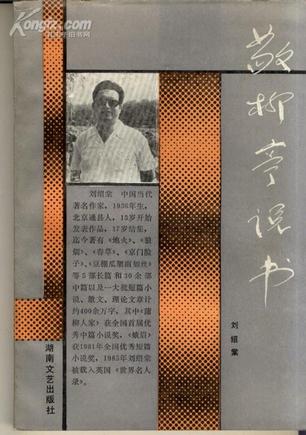 敬柳亭说书
刘绍棠
刘绍棠 中国当代
著名作家，1936年生，
北京通县人，13岁开始
发表作品，17岁结集，
迄今著有《地火》、《狼
烟》、《春草》、《京门脸
子》、《豆棚瓜架雨如丝》
等5部长篇和30余部
中篇以及一大批短篇小
说、散文、理论文章计
约400余万字，其中《蒲
柳人家》获全国首届优
秀中篇小说奖，《蛾眉》
获1981年全国优秀短篇
小说奖，1985年刘绍棠
被载入英国《世界名人
录》。
湖南文艺出版社